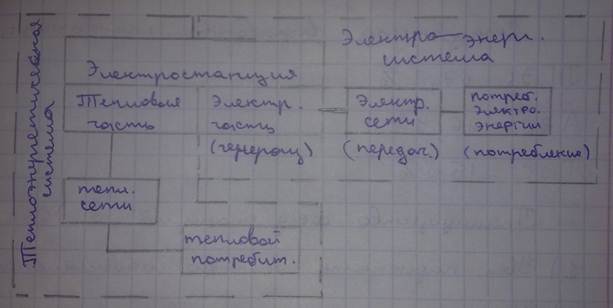 Теплоэнергетическая
система
Электро-энерг.
система
Электростанция
Тепловые
часть
Электр.
часть
(генерац)
Электр.
сети
(передач.)
потреб.
электро.
энергии
(потребление)
тепл.
сети
тепловой
потребит.